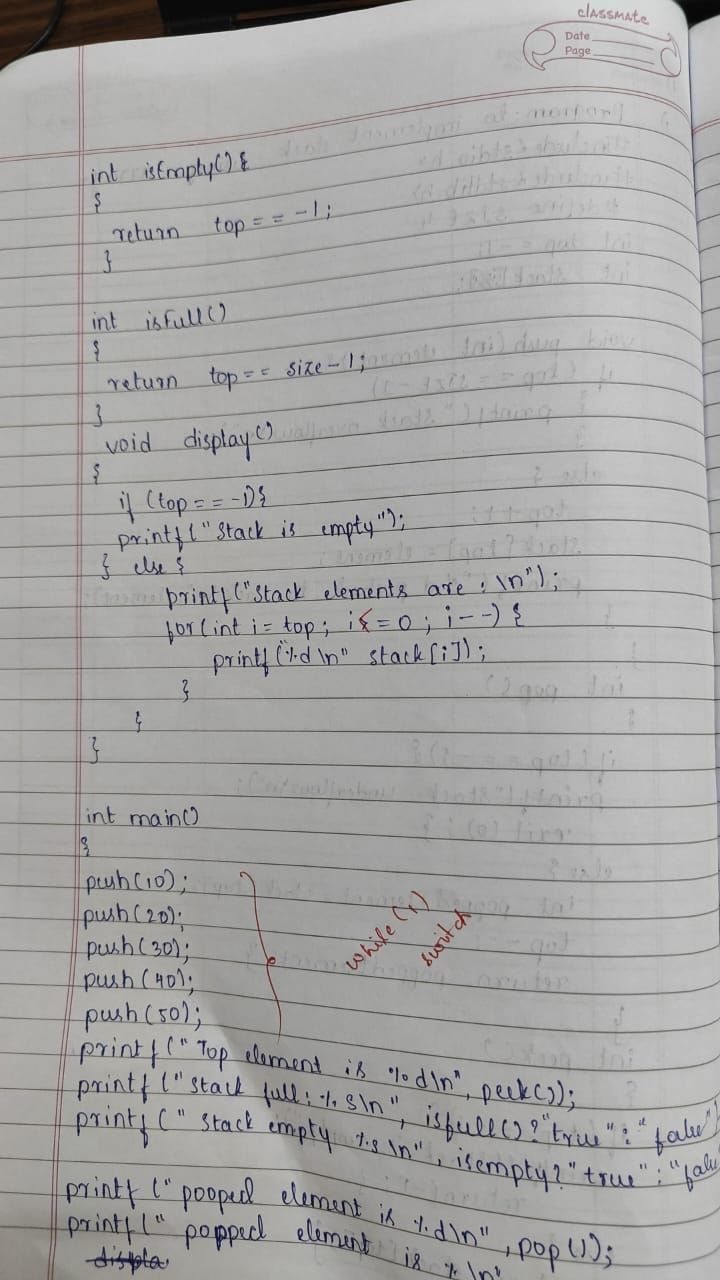 classmate
Date
Page
int isEmpty() {
{
return top == -1;
}
int isfull()
{
return top == size-1;
}
void display()
{
if (top == -1){
printf("Stack is empty");
} else {
printf("Stack elements are : \n");
for(int i= top; i<=0; i--) {
printf("%d \n" stack[i]);
}
}
}
int main()
{
push(10);
push(20);
push(30);
push(40);
push(50);
while(1)
switch
printf(" Top element is %d\n", peek());
printf("stack full: %s\n", isfull()?"true":"false"
printf(" stack empty %s\n", isempty?"true":"false
printf(" pooped element is %d\n", pop());
printf(" popped element is % \n"